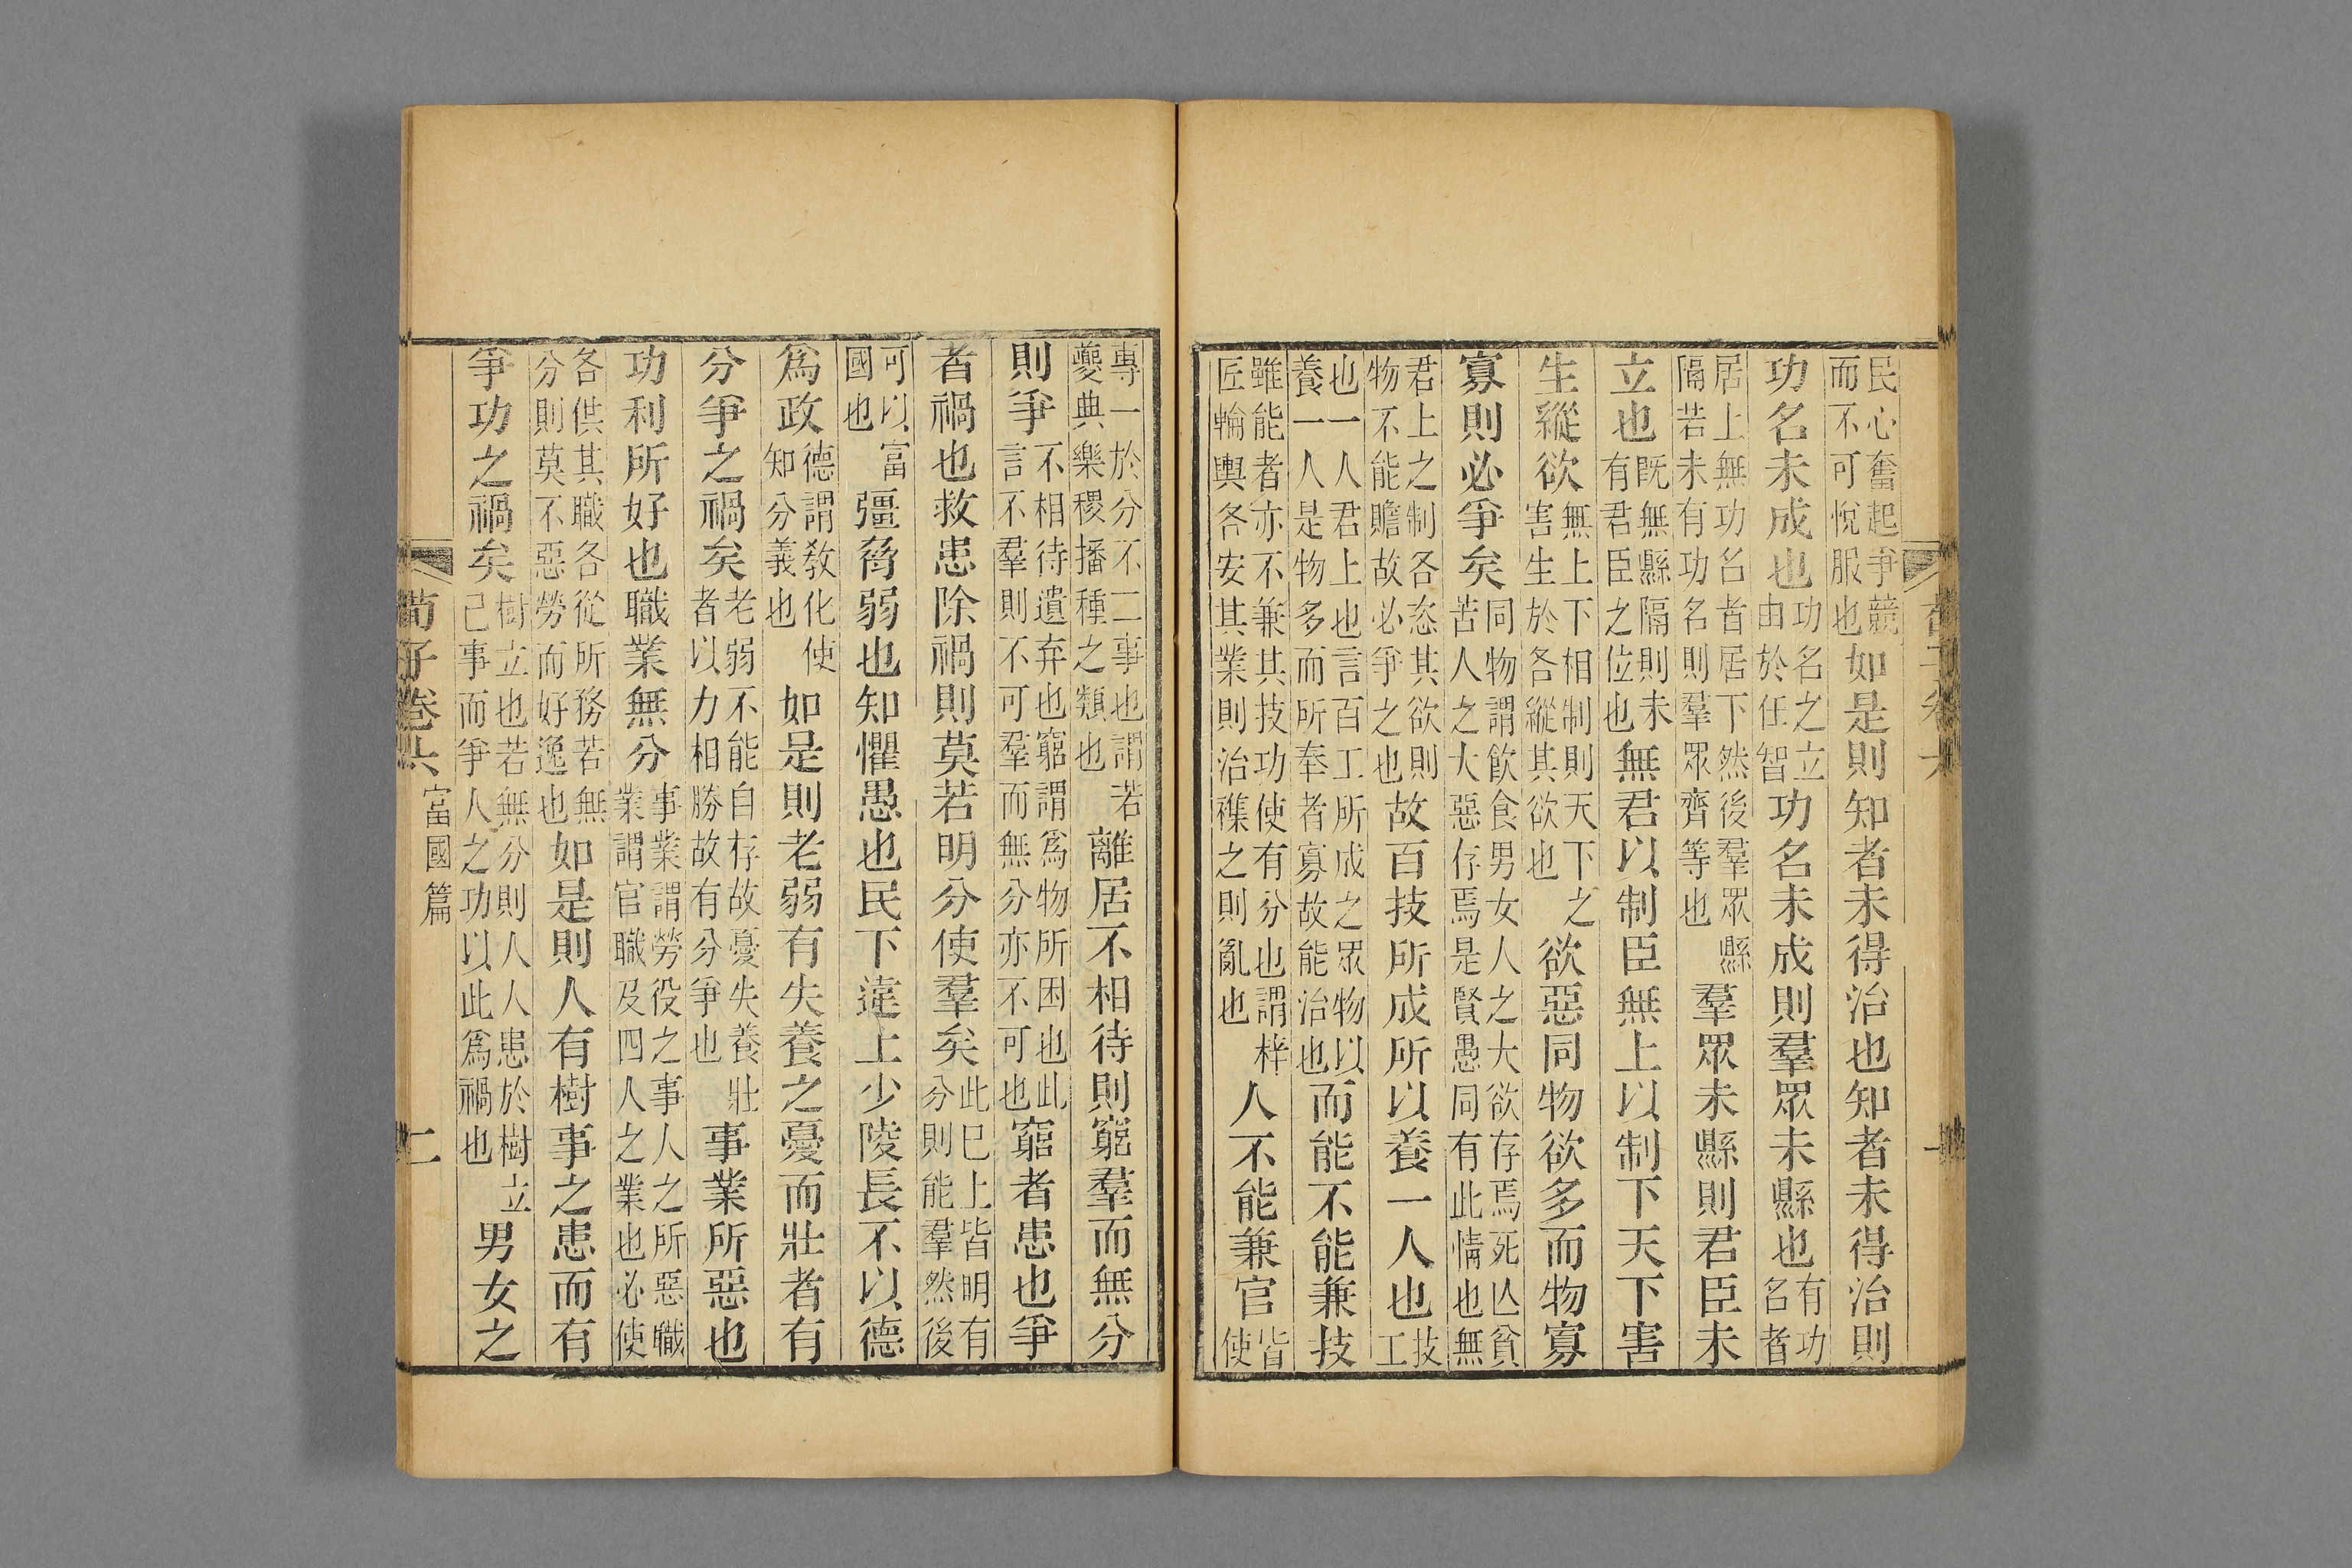 民心奮起爭競而不可悅服也如是則知者未得治也知者未得治則
功名未成也功名之立由於任智功名未成則羣眾未縣也有功名者
居上無功名者居下然後羣眾縣隔若未有功名則羣眾齊等也羣眾未縣則君臣未
立也既無縣隔則未有君臣之位也無君以制臣無上以制下天下害
生縱欲無上下相制則天下之害生於各縱其欲也欲惡同物欲多而物寡
寡則必爭矣同物謂飲食男女人之大欲存焉死亾貧苦人之大惡存焉是賢愚同有此情也無
君上之制各恣其欲則物不能贍故必爭之也故百技所成所以養一人也技工
也一人君上也言百工所成之眾物以養一人是物多而所奉者寡故能治也而能不能兼技
雖能者亦不兼其技功使有分也謂梓匠輪輿各安其業則治襍之則亂也人不能兼官皆使
專一於分不二事也謂若夔典樂稷播種之類也離居不相待則窮羣而無分
則爭不相待遺弃也窮謂爲物所困也此言不羣則不可羣而無分亦不可也窮者患也爭
者禍也救患除禍則莫若明分使羣矣此已上皆明有分則能羣然後
可以富國也彊脅弱也知懼愚也民下違上少陵長不以德
爲政德謂教化使知分義也如是則老弱有失養之憂而壯者有
分爭之禍矣老弱不能自存故憂失養壯者以力相勝故有分爭也事業所惡也
功利所好也職業無分事業謂勞役之事人之所惡職業謂官職及四人之業也必使
各供其職各從所務若無分則莫不惡勞而好逸也如是則人有樹事之患而有
爭功之禍矣樹立也若無分則人人患於樹立己事而爭人之功以此爲禍也男女之
荀子卷六 富國篇 二